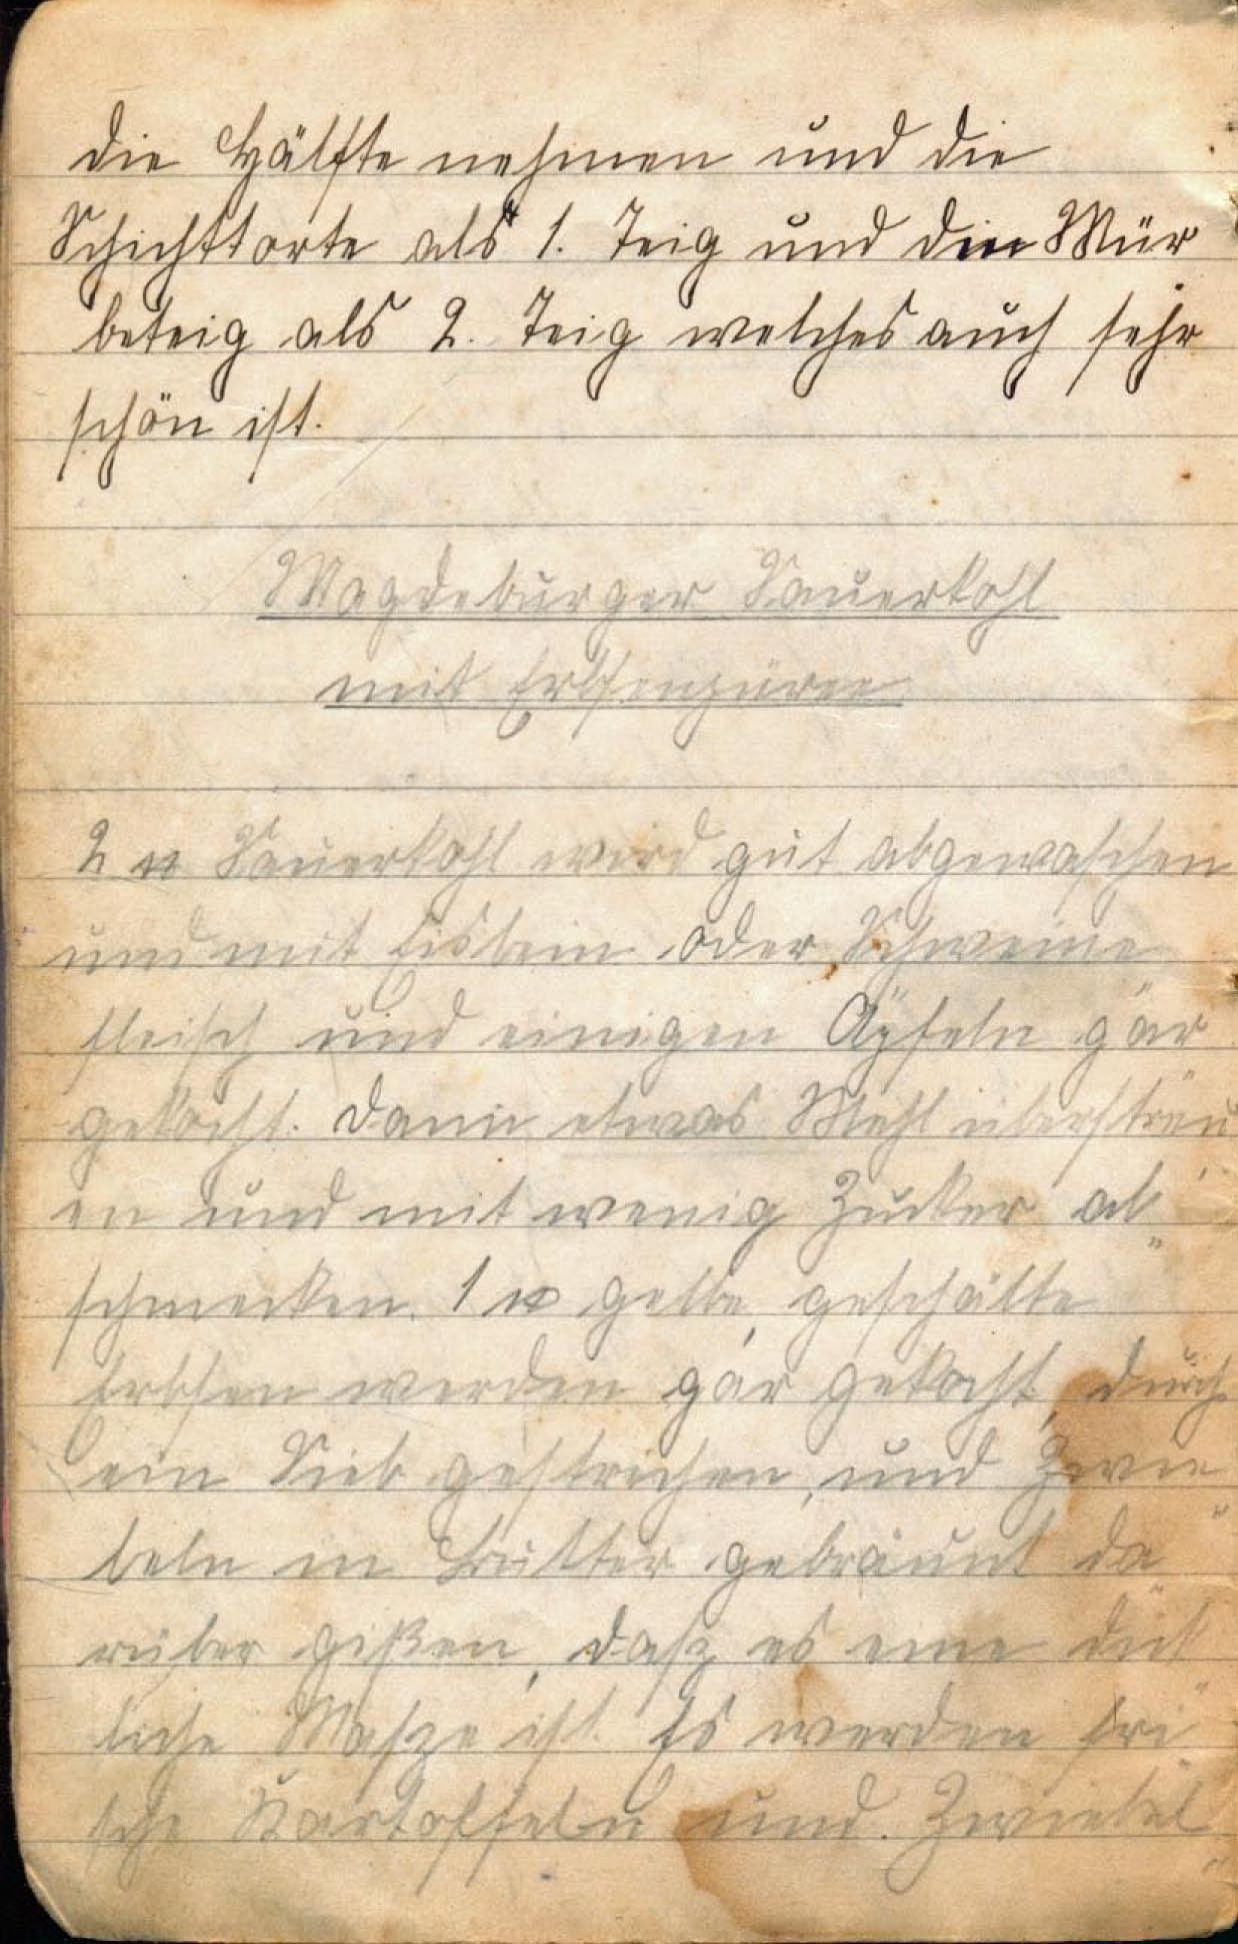 die Hälfte nehmen und die
Schichttorte als 1. Teig und den Mür
beteig als 2. Teig welches auch sehr
schön ist.
Magdeburger Sauerkohl
mit Erbsenpüree
2 ℔ Sauerkohl wird gut abgewaschen
und mit Eisbein oder Schweine
fleisch und einigen Äpfeln gar
gekocht. Dann etwas Mehl überstreu
en und mit wenig Zucker ab„
schmecken. 1 ℔ gelbe, geschälte
Erbsen werden gar gekocht, durch
ein Sieb gestrichen, und Zwie„
beln in Butter gebräunt da„
rüber gißen, daß es eine dick„
liche Maße ist. Es werden fri„
sche Kartoffeln und Zwiebel„